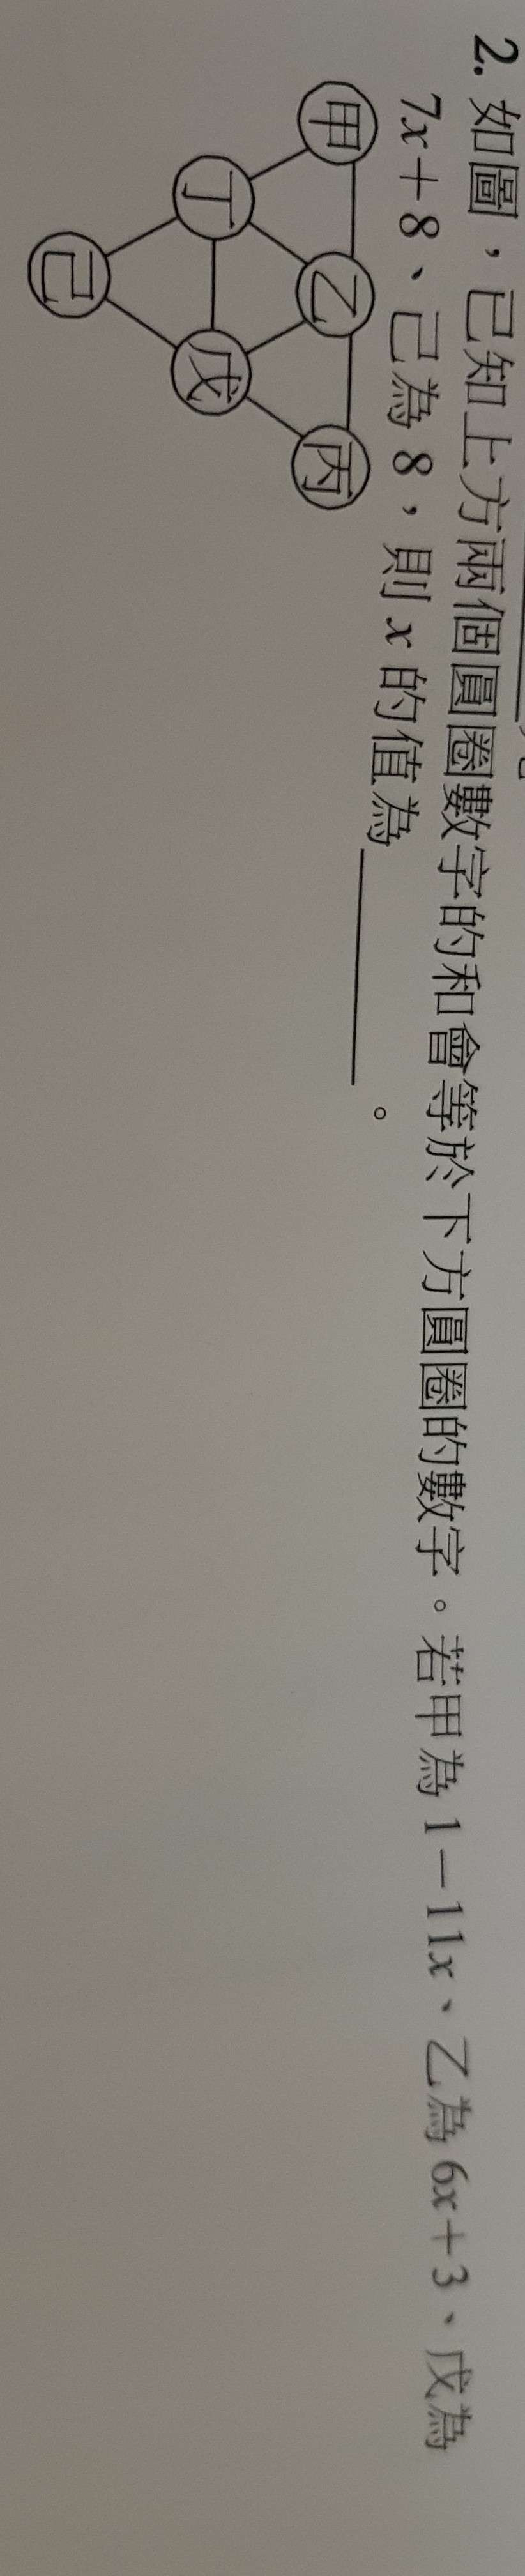 2. 如圖，已知上方兩個圓圈數字的和會等於下方圓圈的數字。若甲為 1－11x、乙為 6x＋3、戊為
7x＋8、己為 8，則 x 的值為＿＿＿＿＿。
甲 乙 丙
丁 戊
己